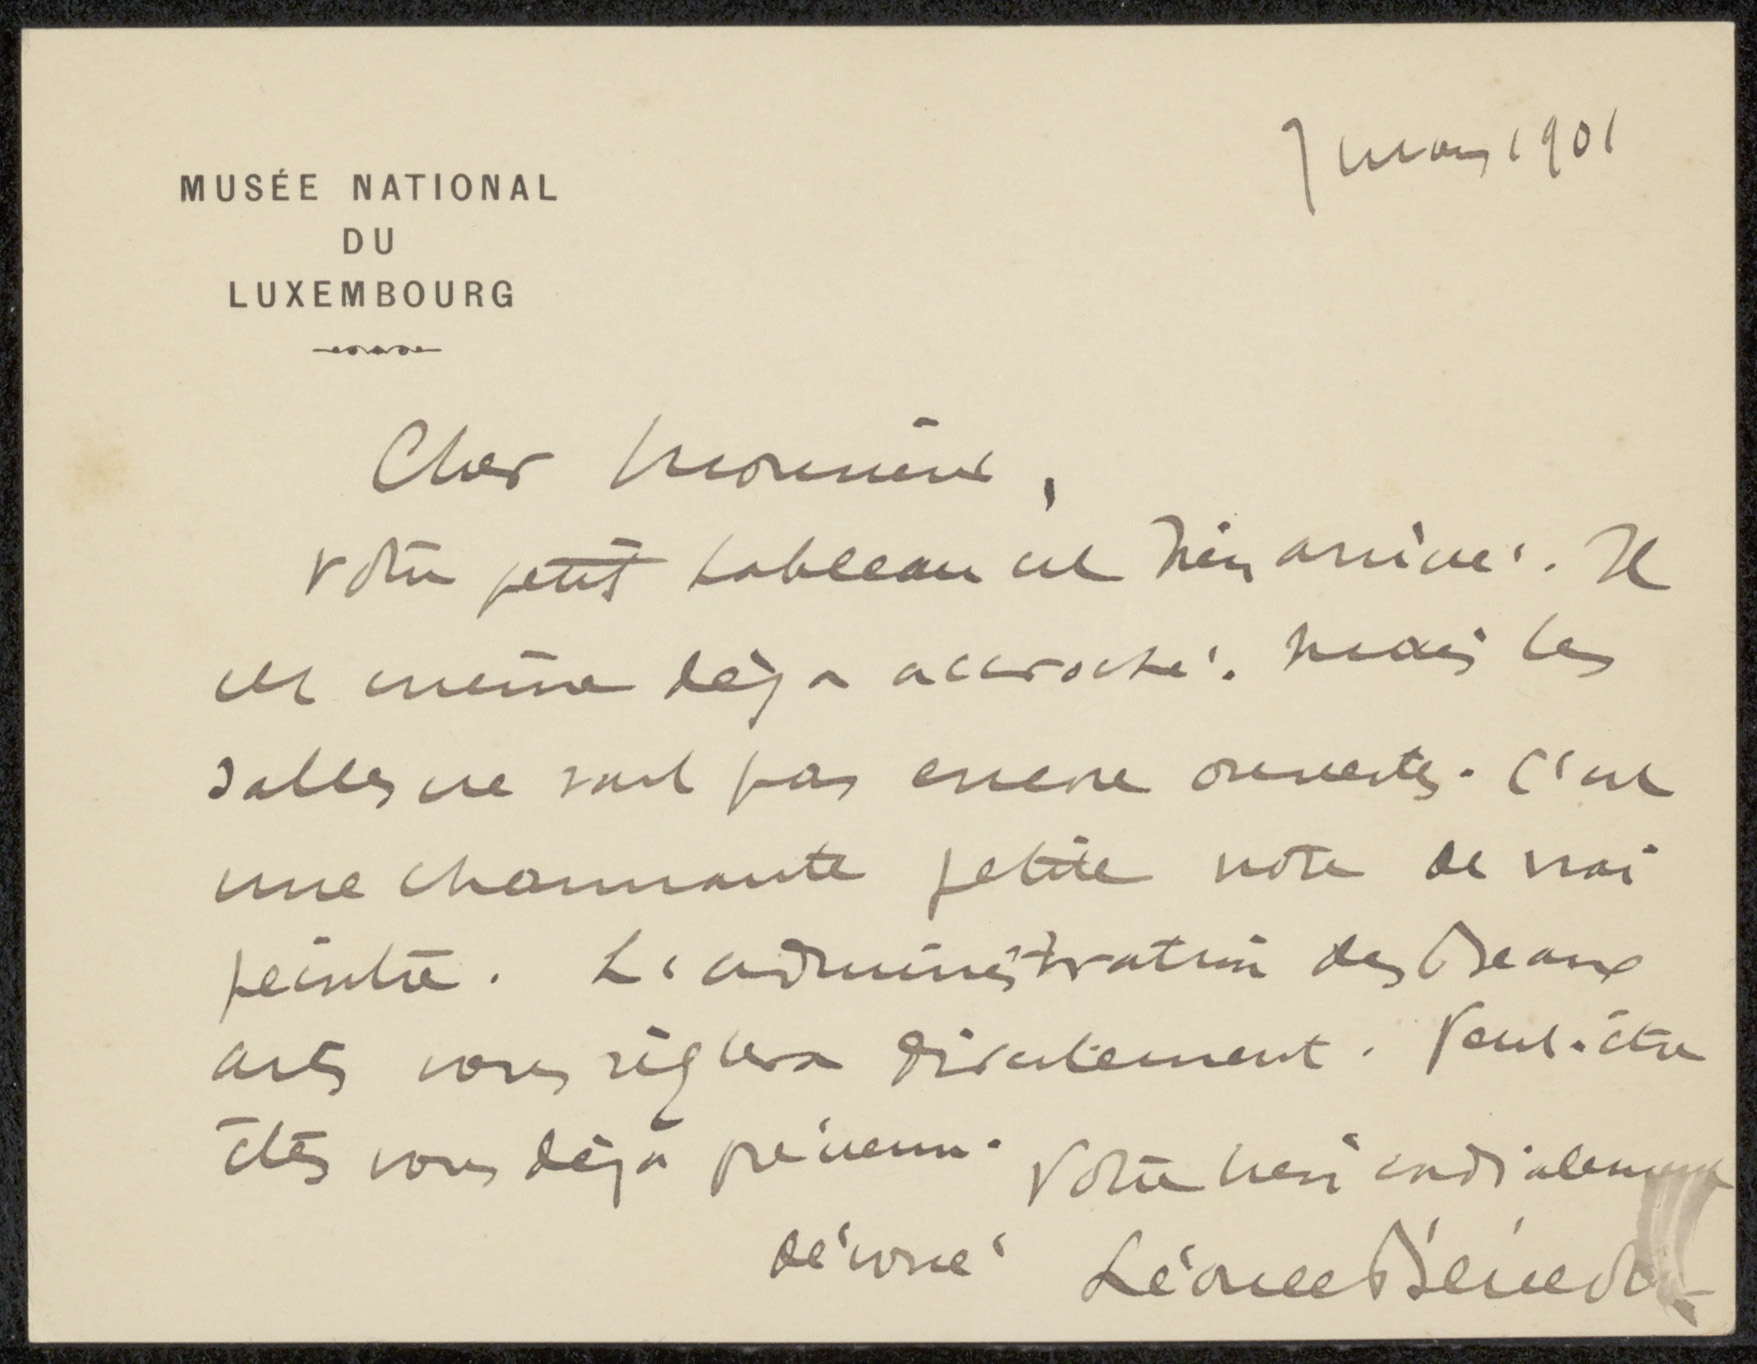 7 mars 1901
MUSÉE NATIONAL
DU
LUXEMBOURG
Cher Monsieur,
votre petit tableau est bien arrivé. Il
est même déjà accroché. Mais les
salles ne sont pas encore ouvertes. C'est
une charmante petite note de vrai
peintre. L'administration des Beaux
arts vous règlera directement. Peut-être
êtes vous déjà prévenu. Votre bien cordialement
dévoué Léonce Bénédite